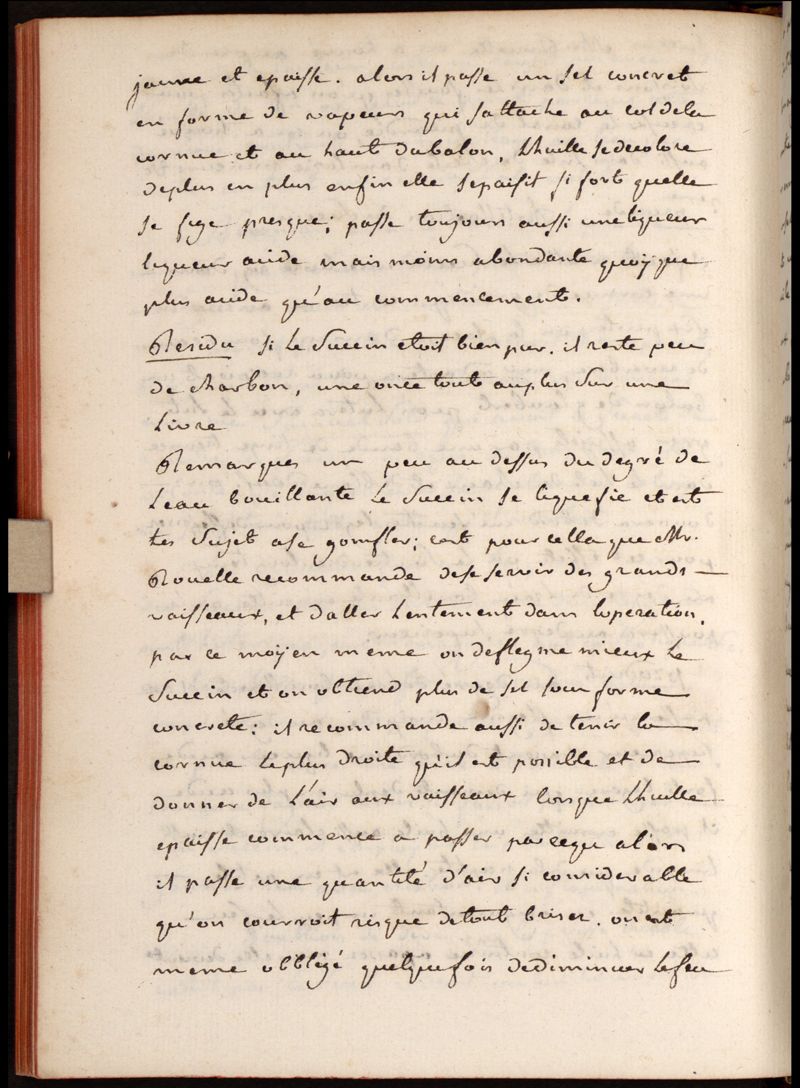 jaune et epaisse. alors il passe un sel concret
en forme de vapeurs qui sattache au col dela
cornue et au haut dubalon, Lhuille sedecolore
deplus en plus enfin elle sepaisit si fort quelle
se fige presque; passe toujours aussi uneliqueur
liqueur acide mais moins abondante quoÿque
plus acide qu'au commencement.
Residu si Le Succin etoit bien pur. il reste peu
de charbon, une once tout auplus Sur une
Livre
Remarques un peu au dessus du degré de
Leau bouillante Le Succin se liquefie et est
tes Sujet ase gonfler; cest pour cella que Mr.
Rouelle recommande dese servir des grands
vaisseaux, et daller Lentement dans loperation,
par ce moÿen meme on deflegme mieux Le
Succin et on obtiend plus de sel sous forme
concrete; il recommande aussi de tenir la
cornue Leplus droite qu'il est possible et de
donner de L'air aux vaisseaux lorsque Lhuille
epaisse commence a passer parcequ alors
il passe une quantité d'air si considerable
qu'on courroit risque detout briser. on est
meme obbligé quelquefois dediminuer Lefeu